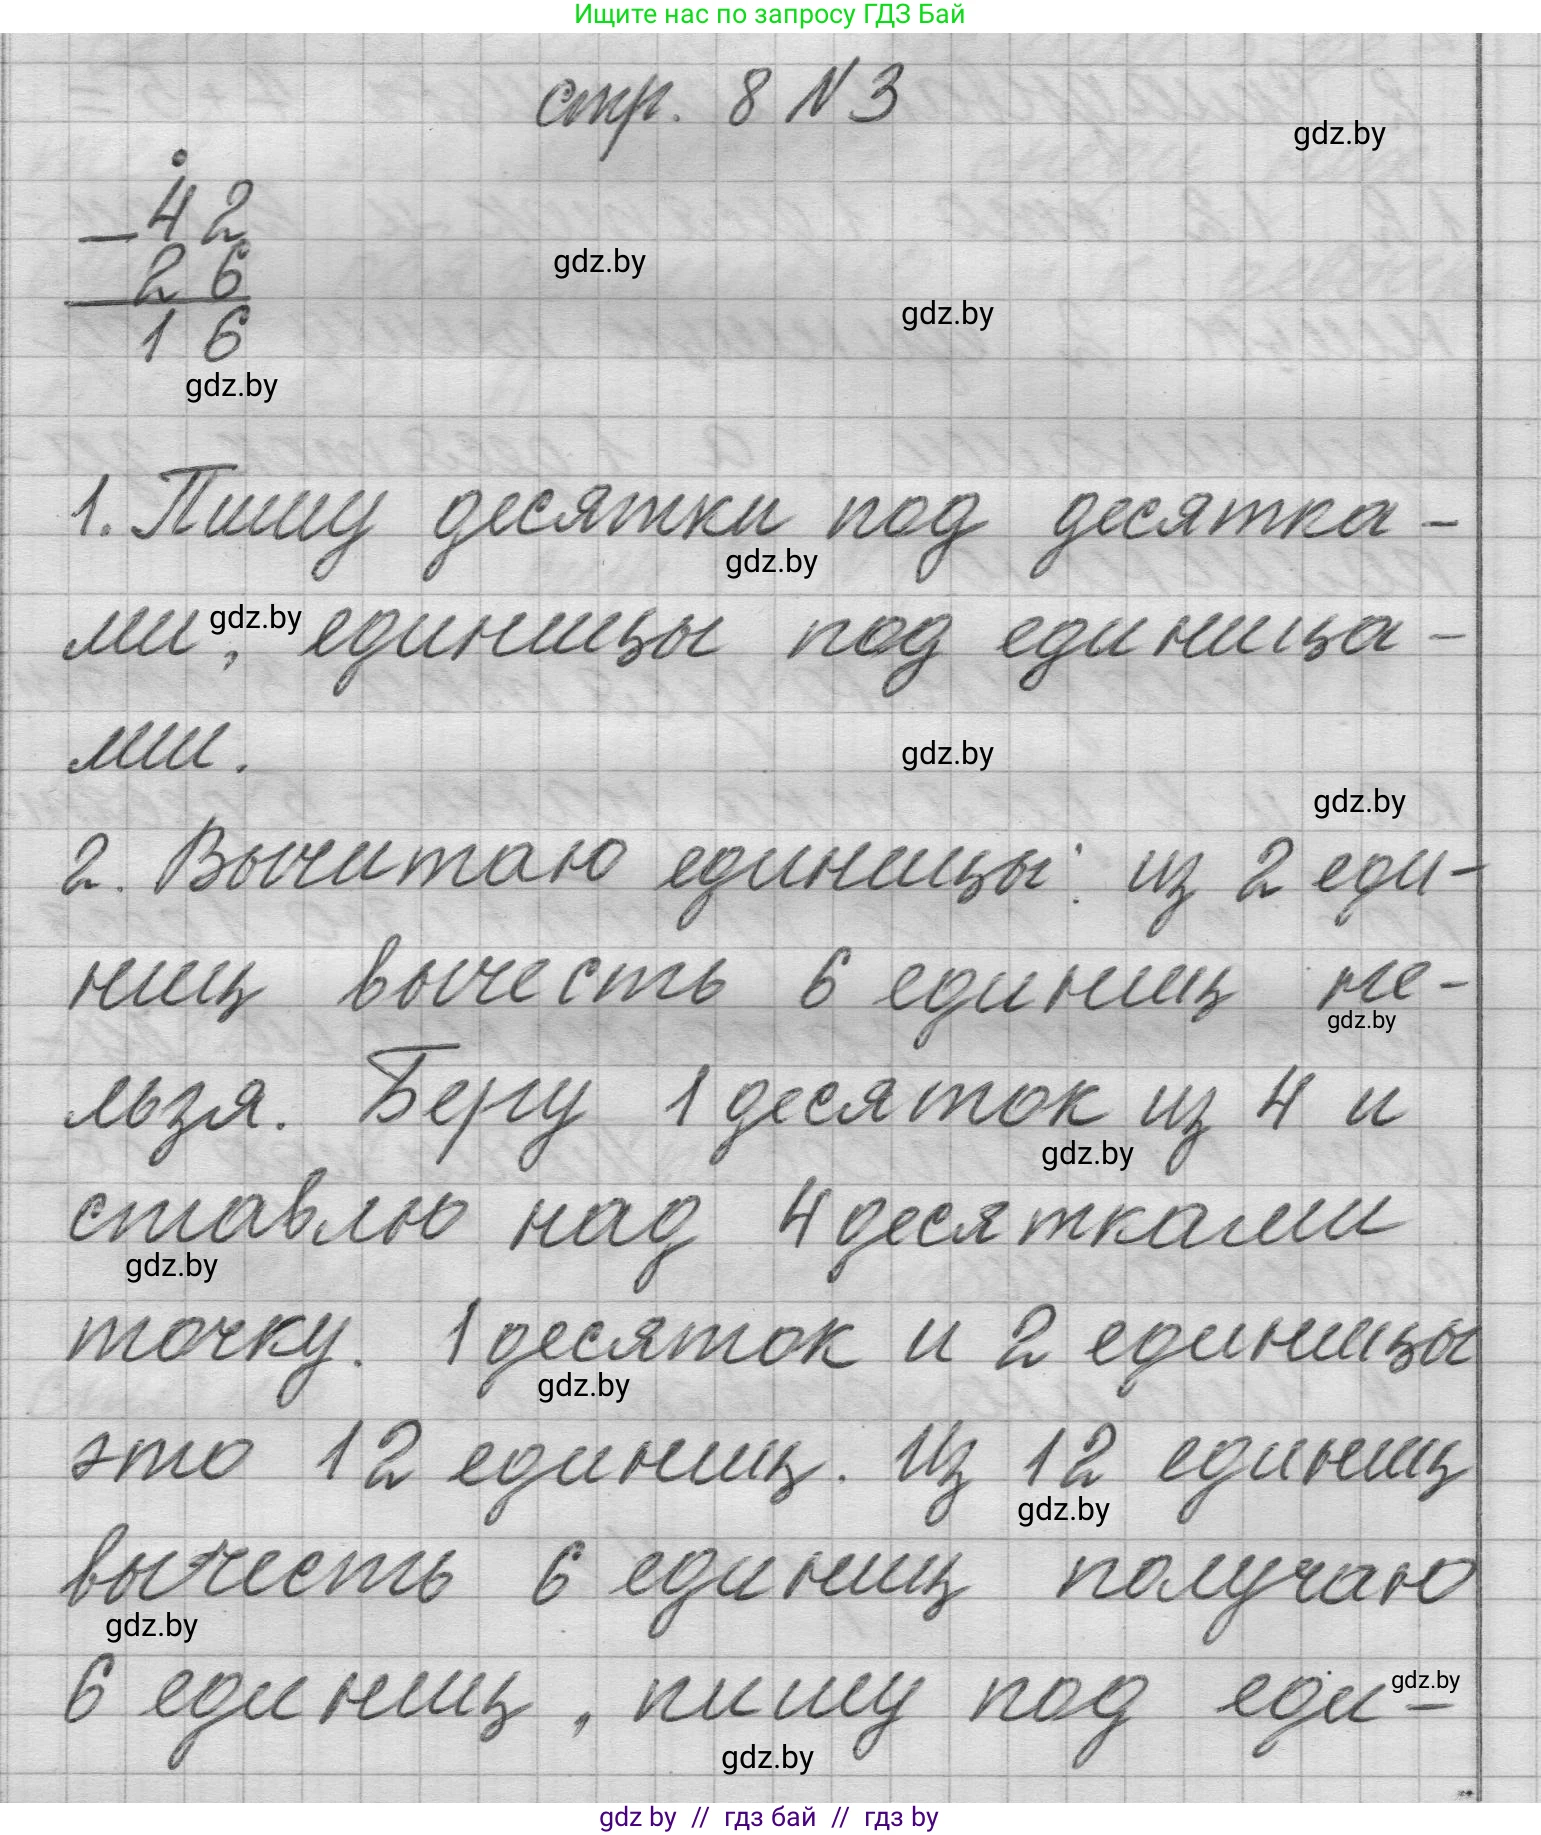 Ищите нас по запросу ГДЗ Бай
стр. 8 № 3
gdz.by
42
– 26
gdz.by
gdz.by
16
gdz.by
1. Пишу десятки под десятка-
gdz.by
ми, единицы под единица-
gdz.by
ми.
gdz.by
gdz.by
2. Вычитаю единицы: из 2 еди-
ниц вычесть 6 единиц не-
gdz.by
льзя. Беру 1 десяток из 4 и
gdz.by
ставлю над 4 десятками
gdz.by
точку. 1 десяток и 2 единицы
gdz.by
это 12 единиц. Из 12 единиц
gdz.by
вычесть 6 единиц получаю
gdz.by
6 единиц, пишу под еди-
gdz.by
gdz.by
gdz by // гдз бай // гдз by